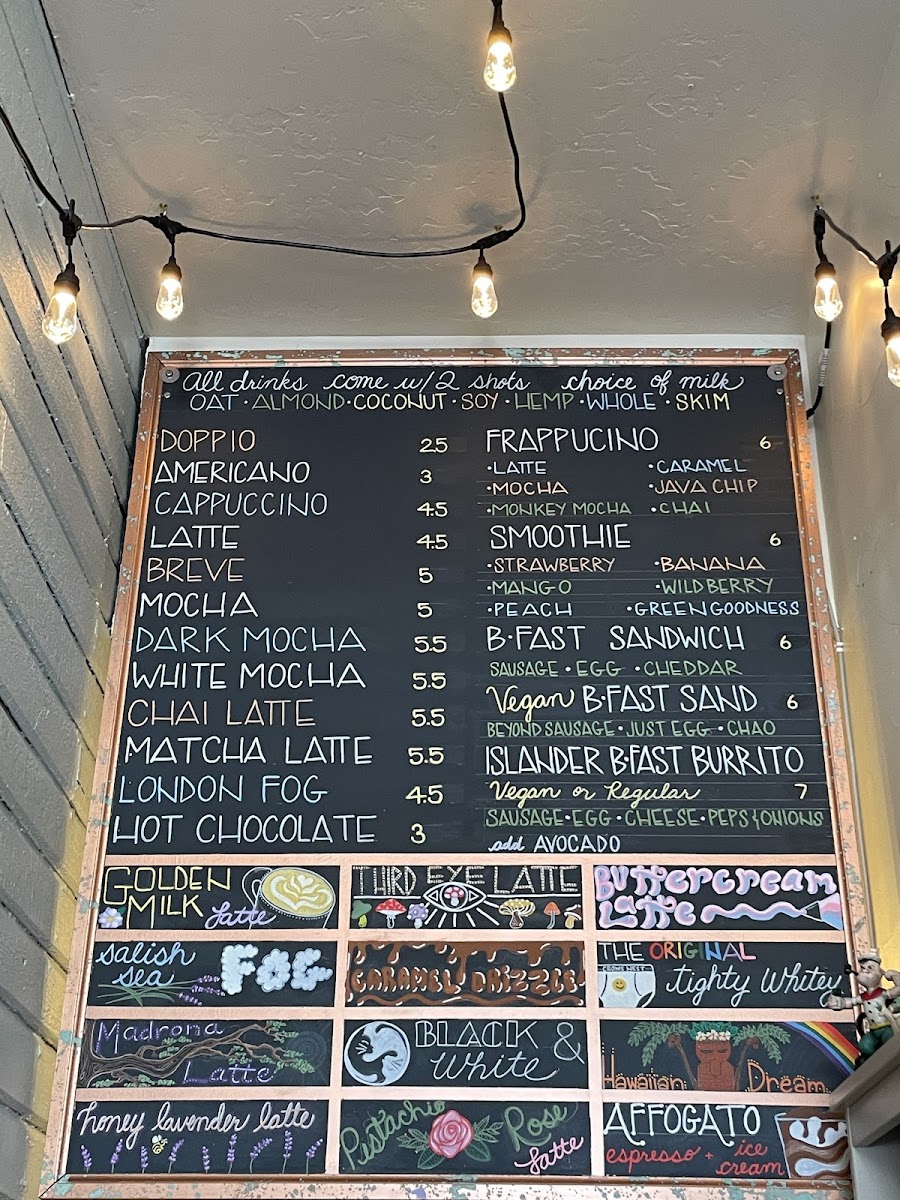 All drinks come w/2 shots choice of milk
OAT · ALMOND · COCONUT · SOY · HEMP · WHOLE · SKIM
DOPPIO 2.5
AMERICANO 3
CAPPUCCINO 4.5
LATTE 4.5
BREVE 5
MOCHA 5
DARK MOCHA 5.5
WHITE MOCHA 5.5
CHAI LATTE 5.5
MATCHA LATTE 5.5
LONDON FOG 4.5
HOT CHOCOLATE 3
FRAPPUCINO 6
·LATTE ·CARAMEL
·MOCHA ·JAVA CHIP
·MONKEY MOCHA ·CHAI
SMOOTHIE 6
·STRAWBERRY ·BANANA
·MANGO ·WILDBERRY
·PEACH ·GREEN GOODNESS
B·FAST SANDWICH 6
SAUSAGE · EGG · CHEDDAR
Vegan B·FAST SAND 6
BEYOND SAUSAGE · JUST EGG · CHAO
ISLANDER B·FAST BURRITO
Vegan or Regular 7
SAUSAGE · EGG · CHEESE · PEPS & ONIONS
add AVOCADO
GOLDEN
MILK Latte
THIRD EYE LATTE
Buttercream
Latte
Salish
Sea FOG
CARAMEL DRIZZLE
THE ORIGINAL
CROWS NEST
tighty Whitey
Madrona
Latte
BLACK &
White
Hawaiian Dream
honey lavender latte
Pistachio Rose
Latte
AFFOGATO
espresso + ice
cream